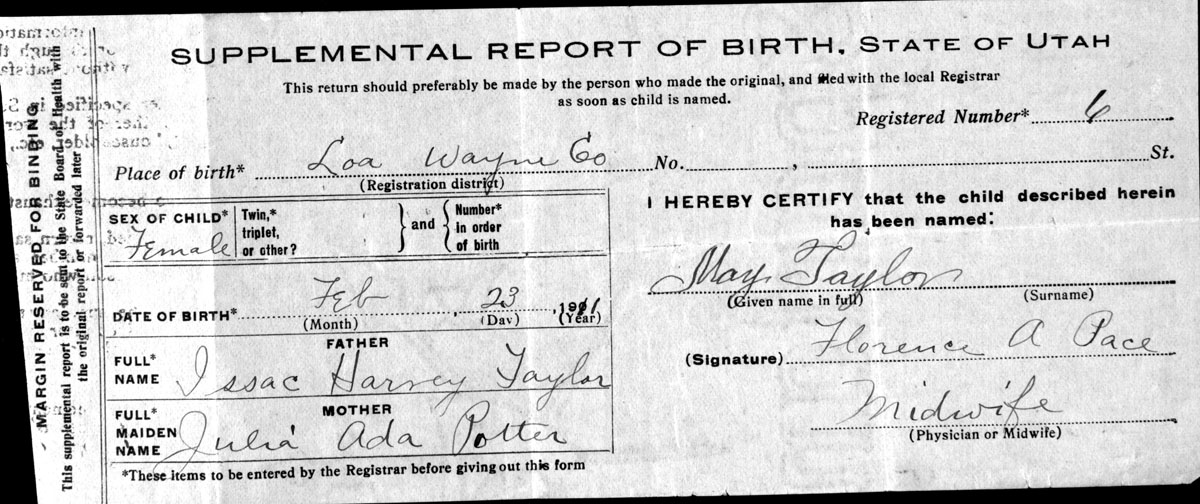 SUPPLEMENTAL REPORT OF BIRTH, STATE OF UTAH
This return should preferably be made by the person who made the original, and filed with the local Registrar
as soon as child is named.
Registered Number* 6
Place of birth* Loa Wayne Co No. , St.
(Registration district)
SEX OF CHILD* Female
Twin,* triplet, or other? } and { Number* in order of birth
DATE OF BIRTH* Feb , 23 , 1911
(Month) (Day) (Year)
FATHER
FULL* NAME Issac Harvey Taylor
MOTHER
FULL* MAIDEN NAME Julia Ada Potter
*These items to be entered by the Registrar before giving out this form
I HEREBY CERTIFY that the child described herein
has been named:
May Taylor
(Given name in full) (Surname)
(Signature) Florence A Pace
Midwife
(Physician or Midwife)
MARGIN RESERVED FOR BINDING
This supplemental report is to be sent to the State Board of Health with
the original report or forwarded later